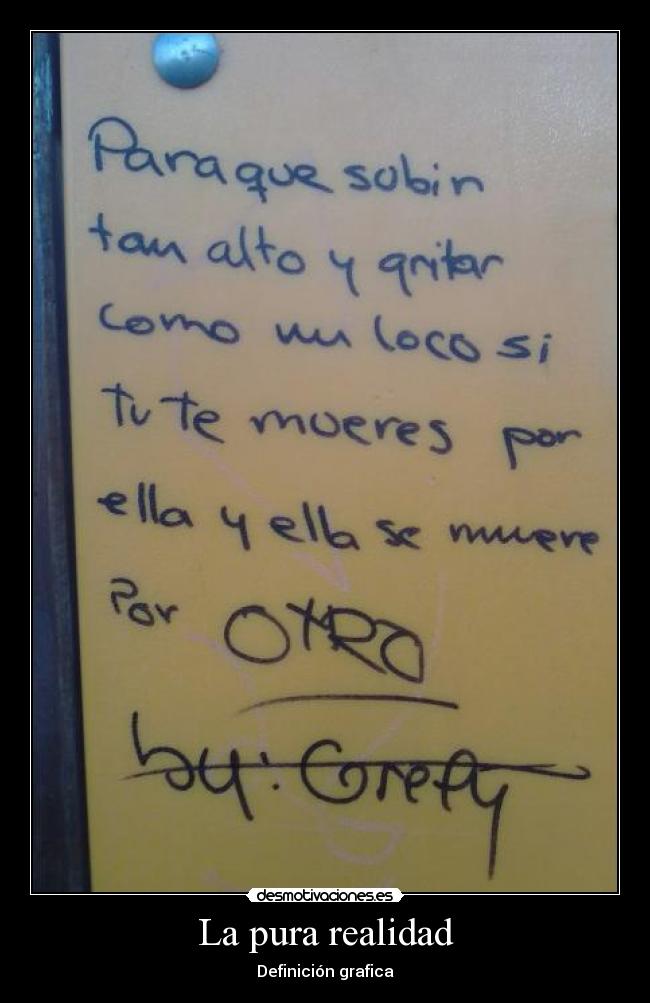 Para que subir
tan alto y gritar
como un loco si
tu te mueres por
ella y ella se muere
Por OTRO
by: Grefy
desmotivaciones.es
La pura realidad
Definición grafica